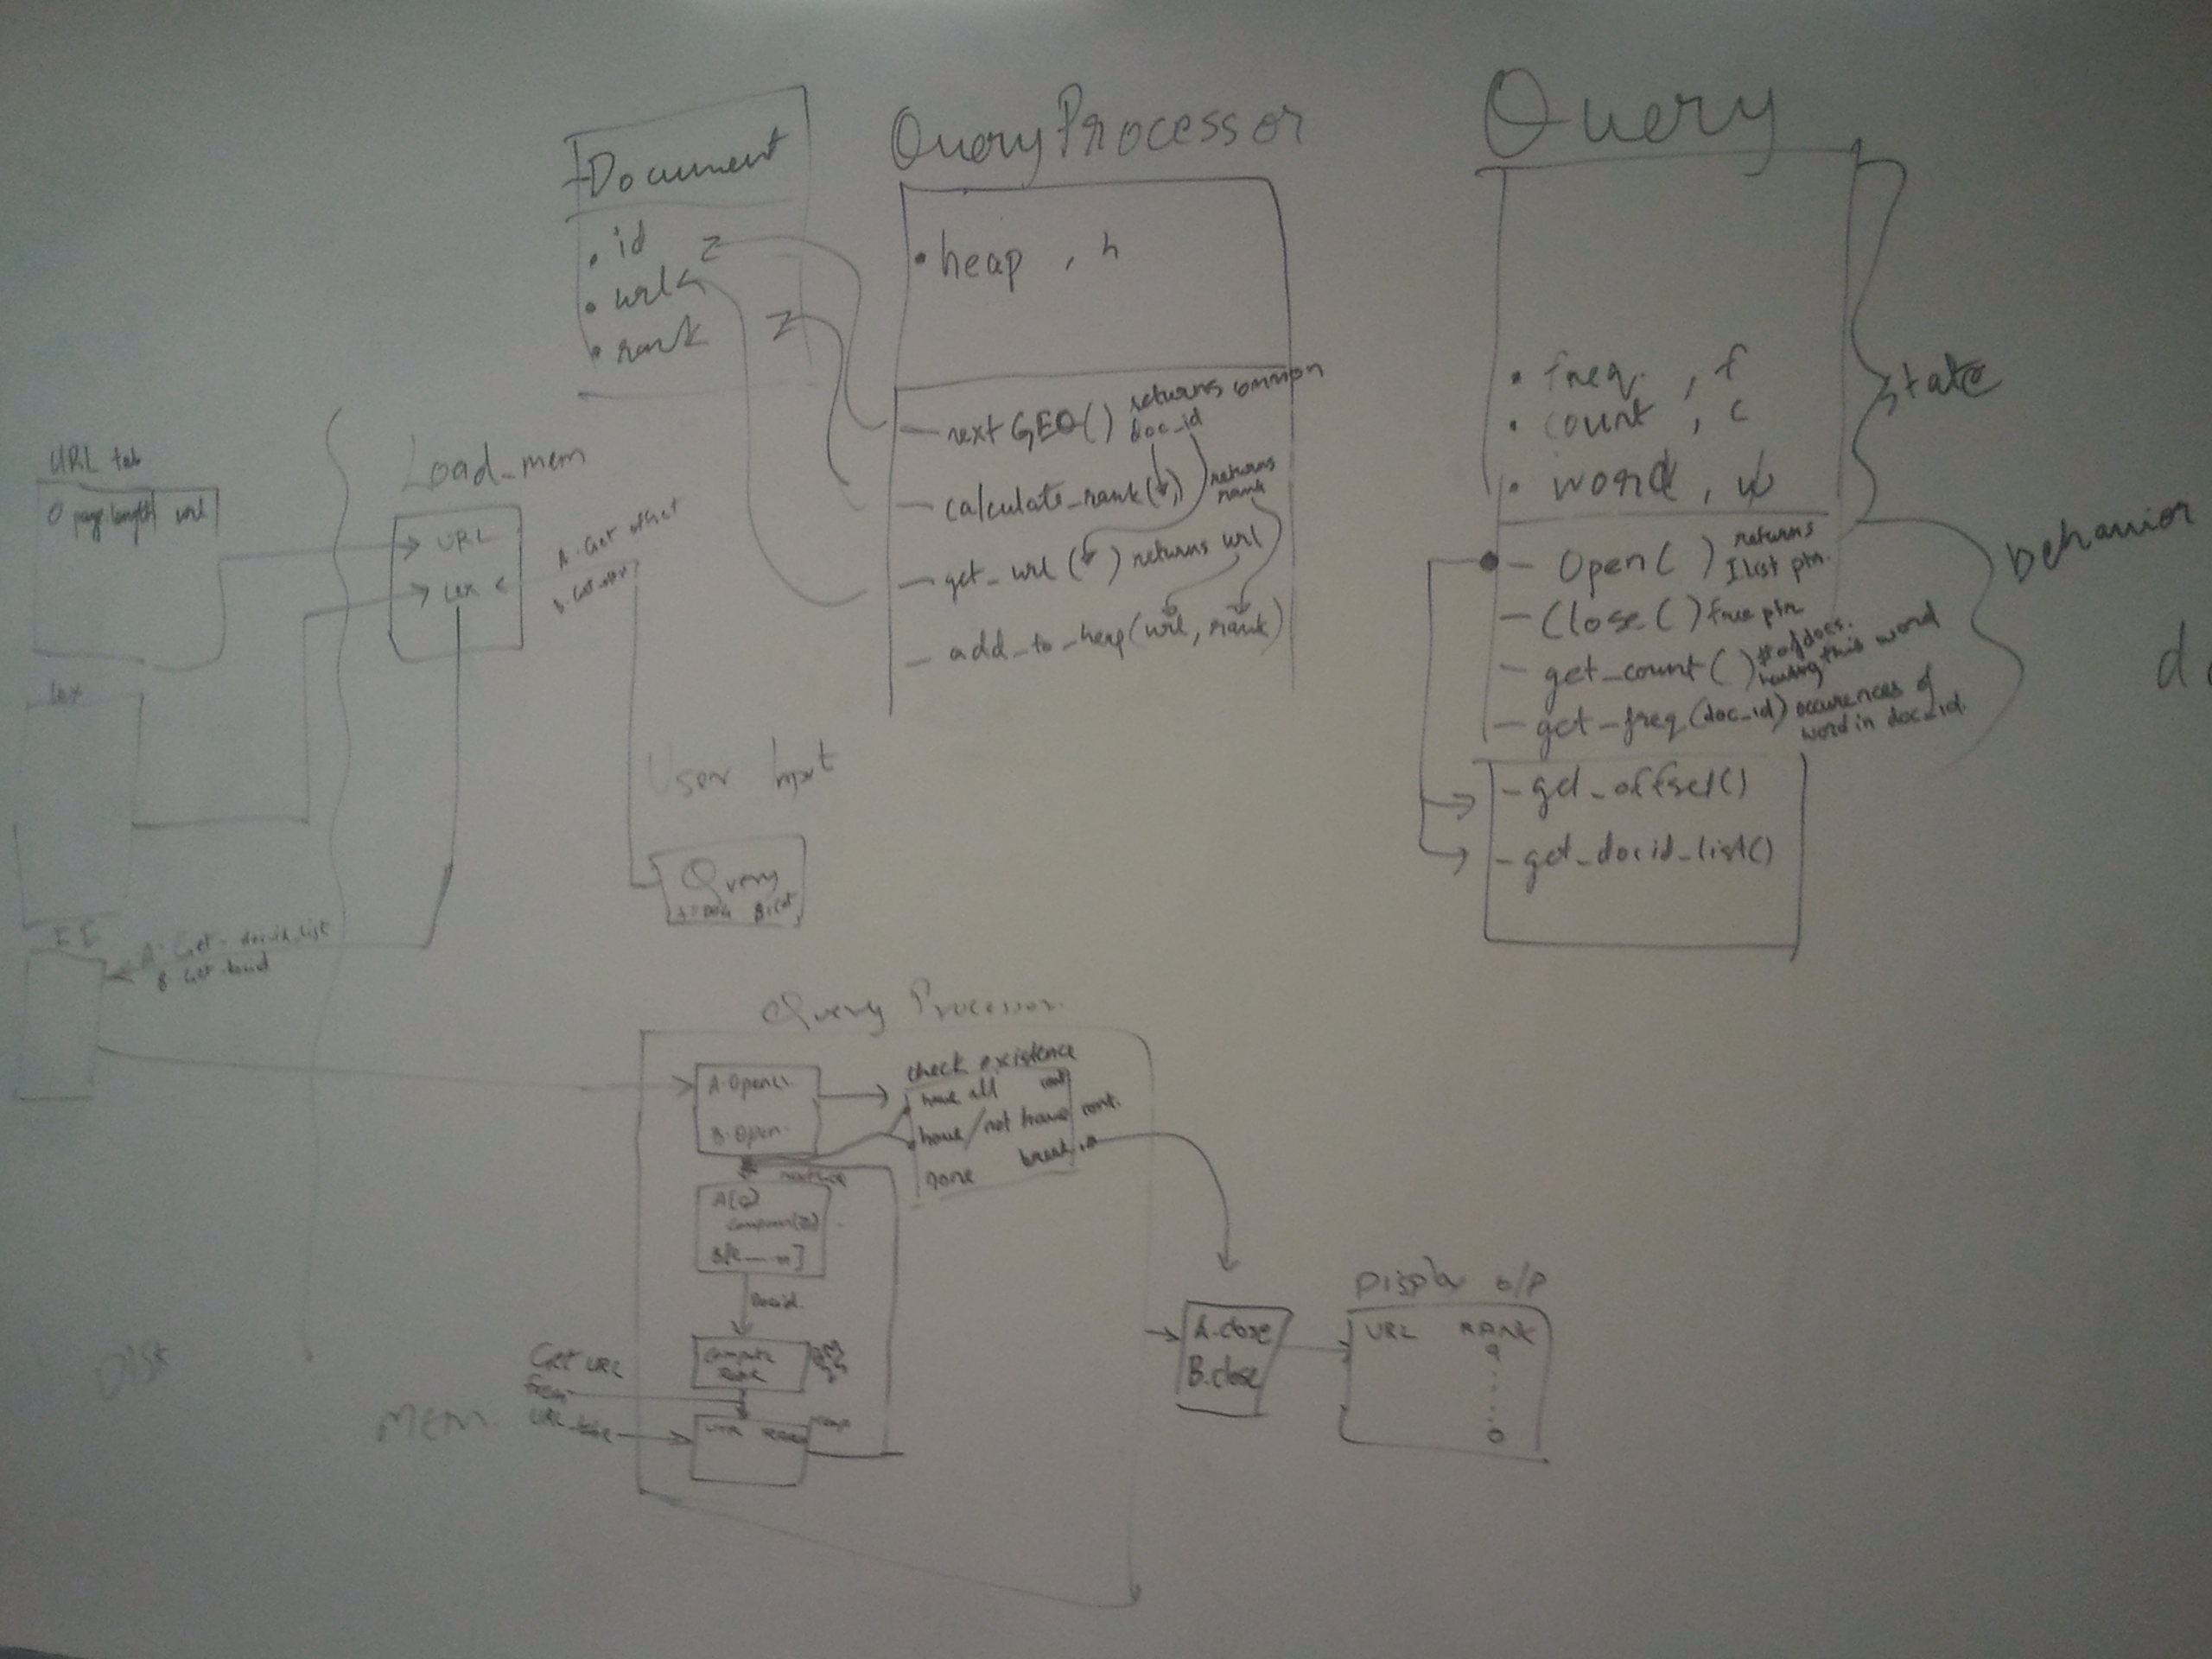 Document
• id
• url
• rank
QueryProcessor
• heap , h
— nextGEQ() returns common doc_id
— calculate_rank( , ) returns rank
— get_url( ) returns url
— add_to_heap(url, rank)
Query
• freq. , f
• count , c
• word , w
state
— Open() returns I list ptr.
— Close() free ptr
— get_count() # of docs. having this word
— get_freq(doc_id) occurences of word in doc_id.
behavior
- get_offset()
- get_docid_list()
URL tab
0 page.length url
Load_mem
URL
Lex
A. Get offset
lex
II
A. Get - docid_list
B. Get
User Input
Query
Query Processor
A.Open
B.Open
check existence
have all cont
have/not have cont.
none break
A[0]
B[
Docid.
Compute
Rank
Get URL
from
URL
heap
A.close
B.close
Display o/p
URL RANK
DISK
MEM